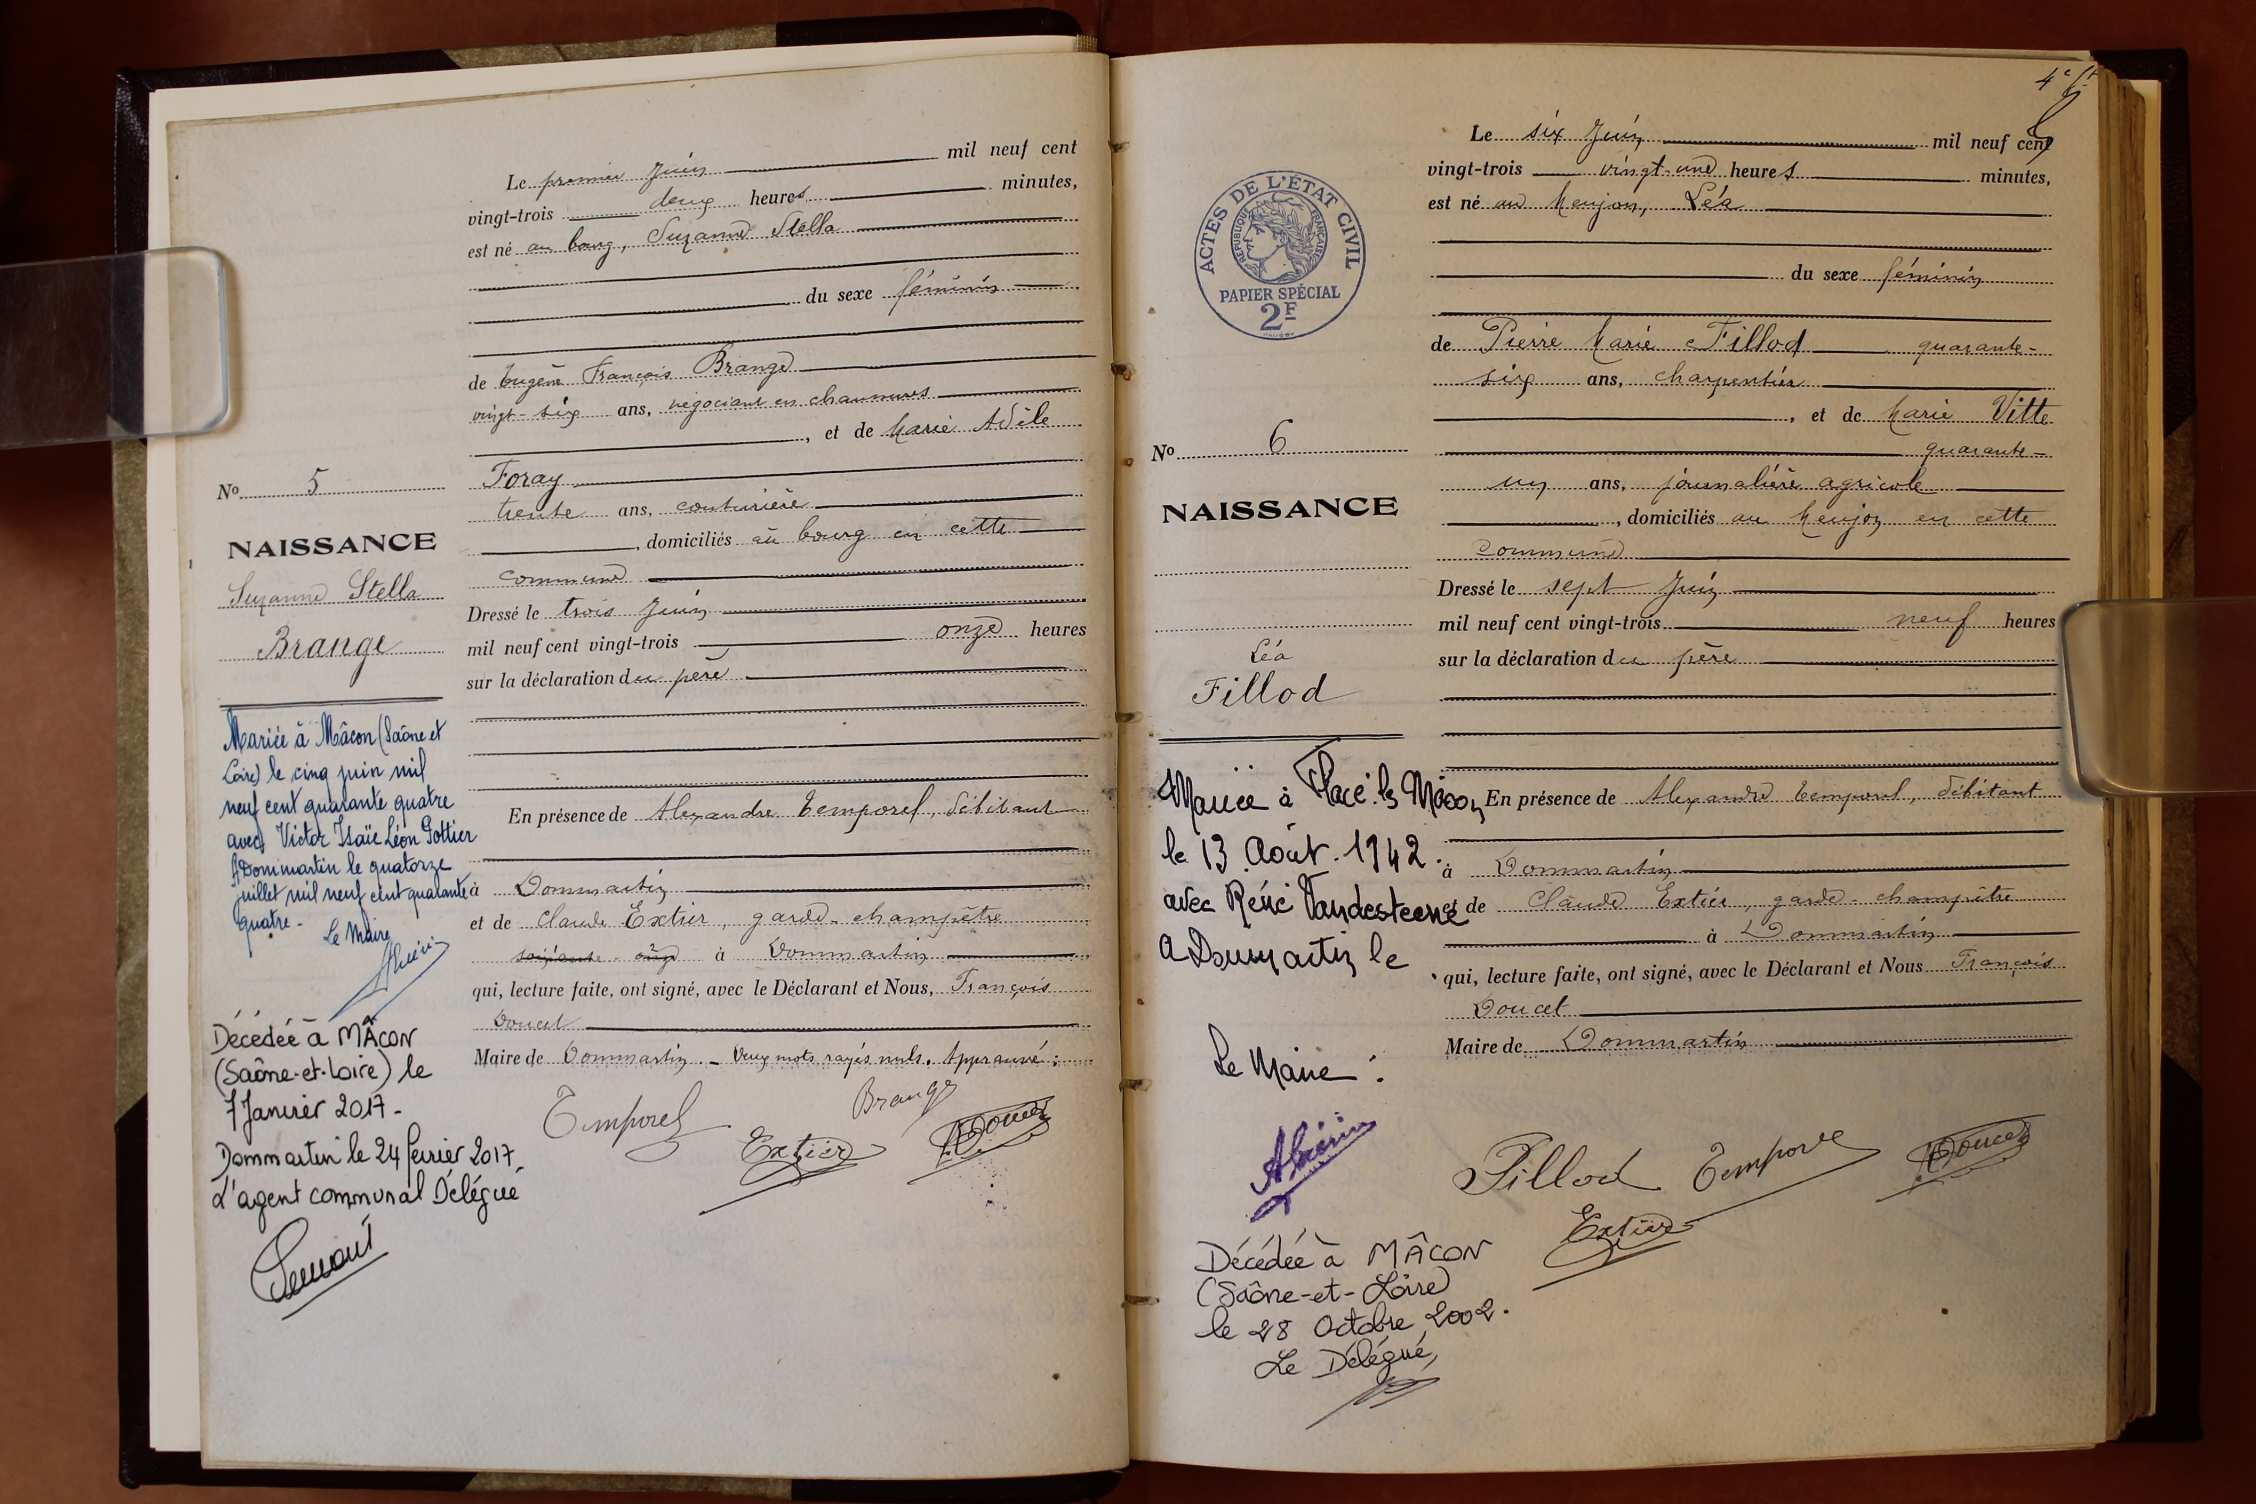 Le premier Juin mil neuf cent
vingt-trois deux heures minutes,
est né au bourg, Suzanne Stella
du sexe féminin
de Eugène François Brange
vingt-six ans, négociant en chaussures
, et de Marie Adèle
Foray
trente ans, couturière
, domiciliés au bourg en cette
commune
Dressé le trois Juin
mil neuf cent vingt-trois onze heures
sur la déclaration du père
En présence de Alexandre Temporel, débitant
à Dommartin
et de Claude Extier, garde-champêtre
soixante-onze à Dommartin
qui, lecture faite, ont signé, avec le Déclarant et Nous, François
Doucet
Maire de Dommartin - Deux mots rayés nuls. Approuvé :
Temporel
Brange
Extier
Doucet
No 5
NAISSANCE
Suzanne Stella
Brange
Mariée à Mâcon (Saône et
Loire) le cinq juin mil
neuf cent quarante quatre
avec Victor Isaïe Léon Gottier
A Dommartin le quatorze
juillet mil neuf cent quarante
quatre -
Le Maire
Décédée à MÂCON
(Saône-et-Loire) le
7 Janvier 2017 -
Dommartin le 24 février 2017,
L'agent communal Délégué
4e ft
Le six Juin mil neuf cent
vingt-trois vingt-une heures minutes,
est né au Meujon, Léa
du sexe féminin
de Pierre Marie Fillod quarante-
six ans, charpentier
, et de Marie Vitte
quarante-
un ans, journalière agricole
, domiciliés au Meujon en cette
commune
Dressé le sept Juin
mil neuf cent vingt-trois neuf heures
sur la déclaration du père
En présence de Alexandre Temporel, débitant
à Dommartin
et de Claude Extier, garde-champêtre
à Dommartin
qui, lecture faite, ont signé, avec le Déclarant et Nous François
Doucet
Maire de Dommartin
Fillod
Temporel
Doucet
Extier
ACTES DE L'ÉTAT CIVIL
RÉPUBLIQUE FRANÇAISE
PAPIER SPÉCIAL
2F
No 6
NAISSANCE
Léa
Fillod
Mariée à Flacé-lès-Mâcon
le 13 Août 1942.
avec René Vandesteene
A Dommartin le
Le Maire :
Décédée à MÂCON
(Saône-et-Loire)
le 28 Octobre 2002.
Le Délégué,